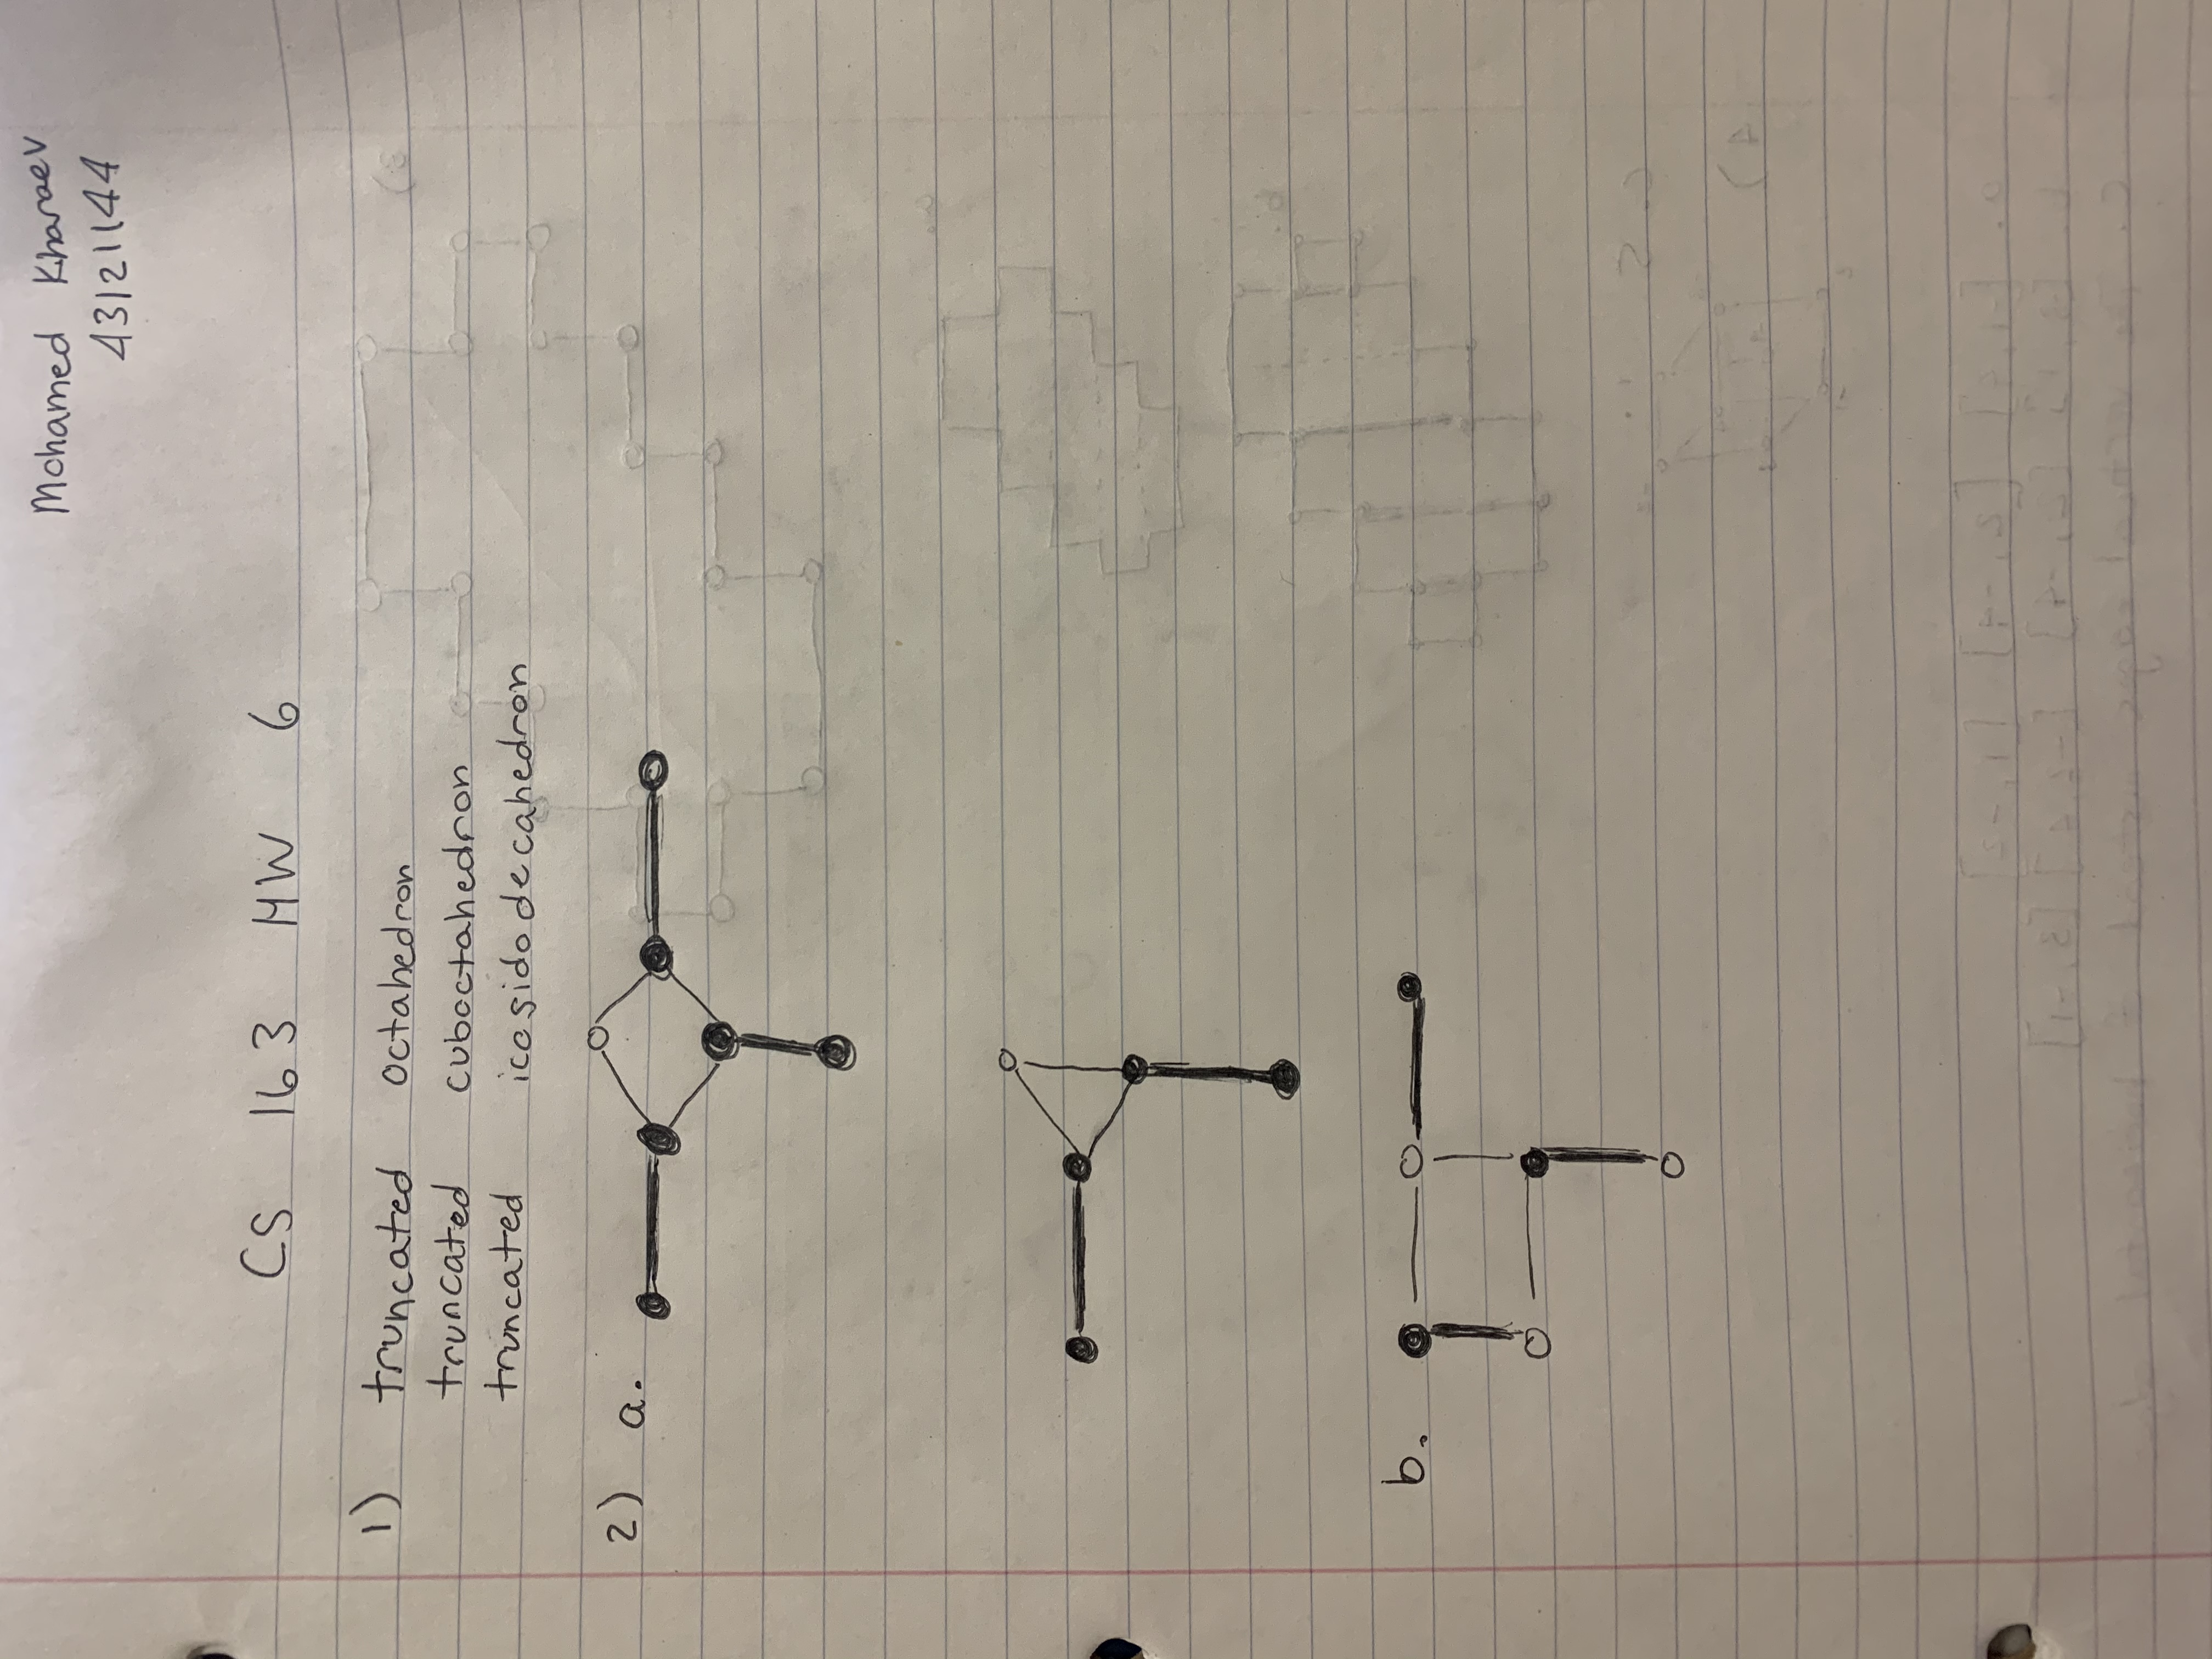 Mohamed Kharaev
43121144
CS 163 HW 6
1) truncated octahedron
truncated cuboctahedron
truncated icosidodecahedron
2) a.
b.